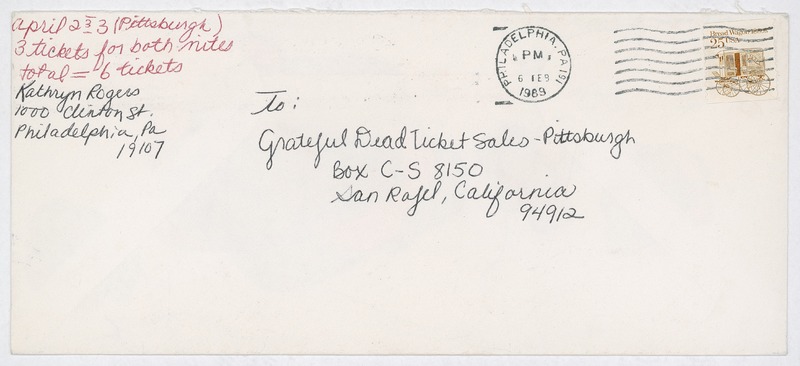 April 2 & 3 (Pittsburgh)
3 tickets for both nites
total = 6 tickets
Kathryn Rogers
1000 Clinton St.
Philadelphia, Pa
19107
PHILADELPHIA, PA 191
PM
6 FEB
1989
Bread Wagon 1880s
25 USA
To:
Grateful Dead Ticket Sales - Pittsburgh
Box C-S 8150
San Rafel, California
94912